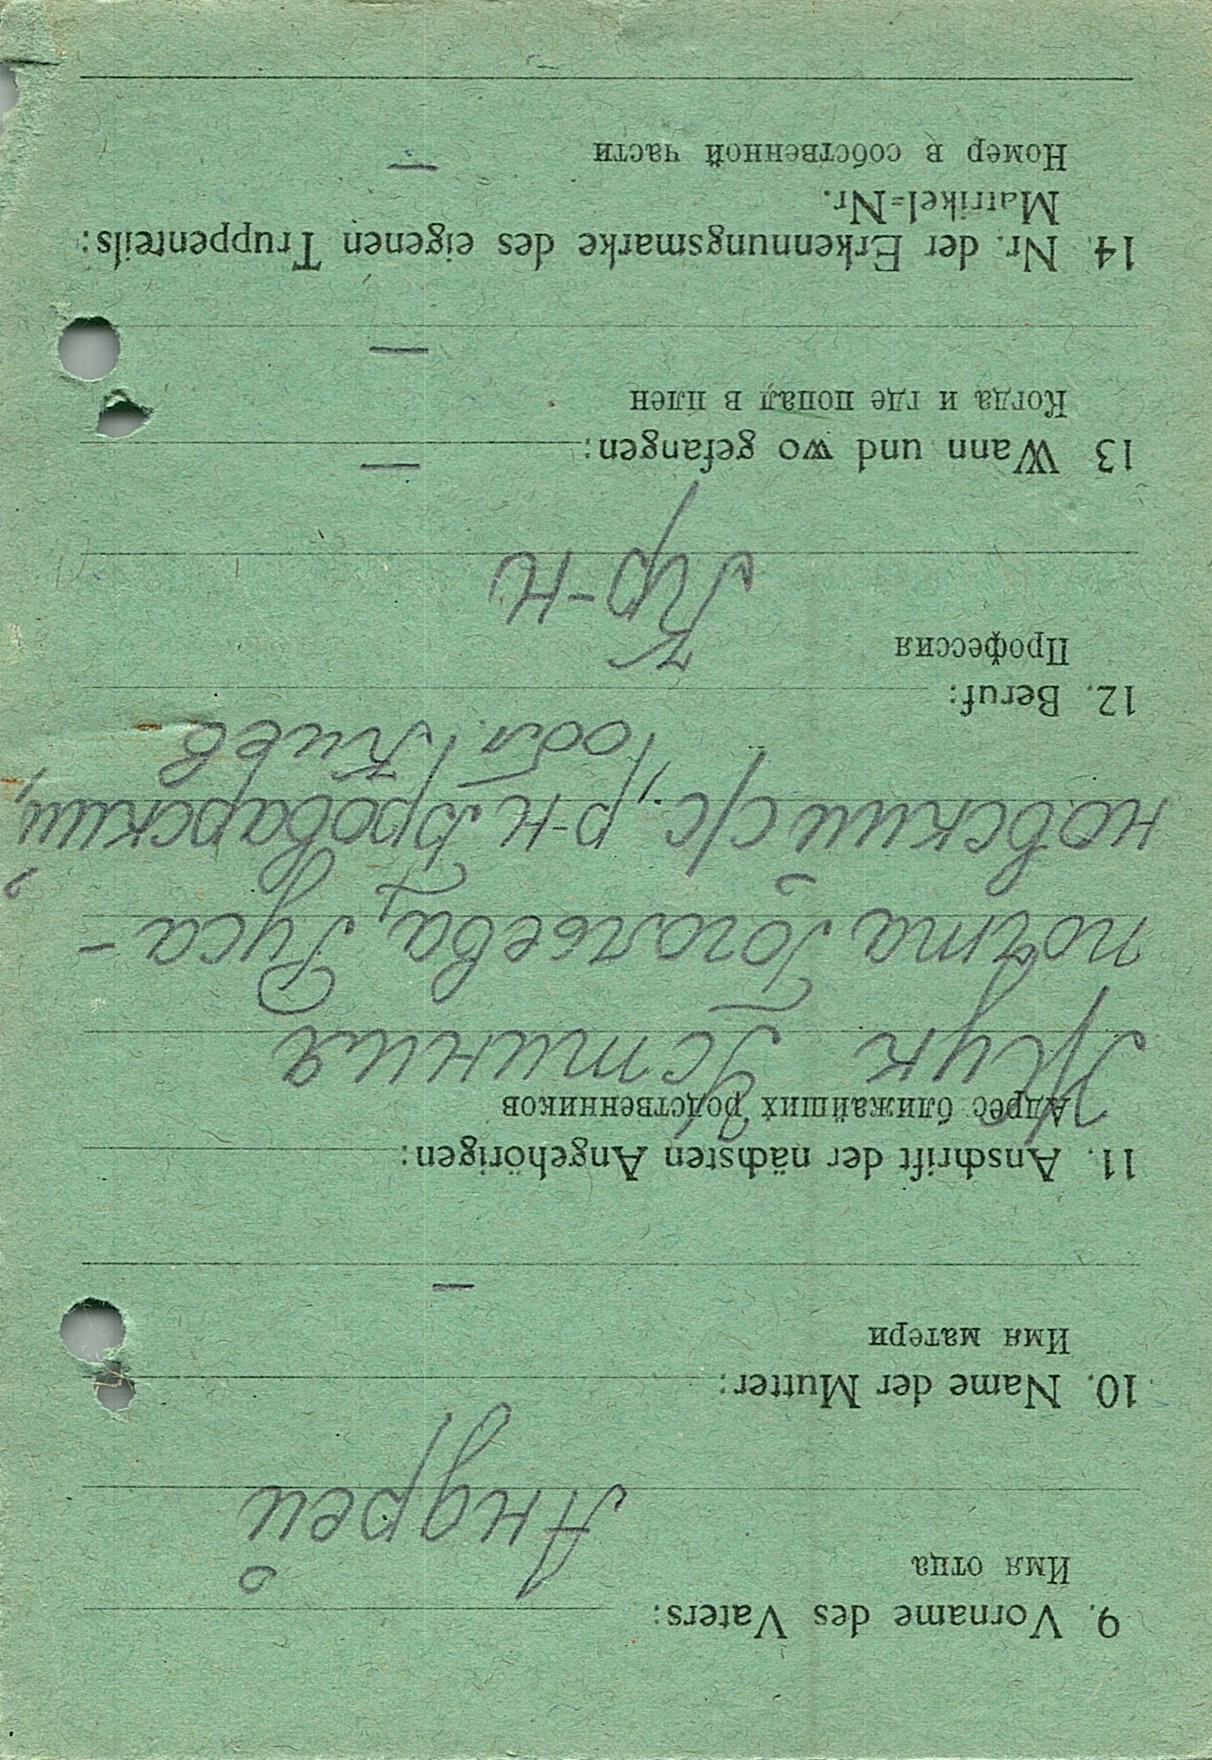 9. Vorname des Vaters:
Имя отца
Андрей
10. Name der Mutter:
Имя матери
—
11. Anschrift der nächsten Angehörigen:
Адрес ближайших родственников
Жук Устиния
почта Гогольева, Руса-
новский с/с., р-н. Броварский,
обл. Киев
12. Beruf:
Профессия
Кр-н
13 Wann und wo gefangen: —
Когда и где попал в плен
—
14. Nr. der Erkennungsmarke des eigenen Truppenteils:
Matrikel=Nr.
Номер в собственной части —